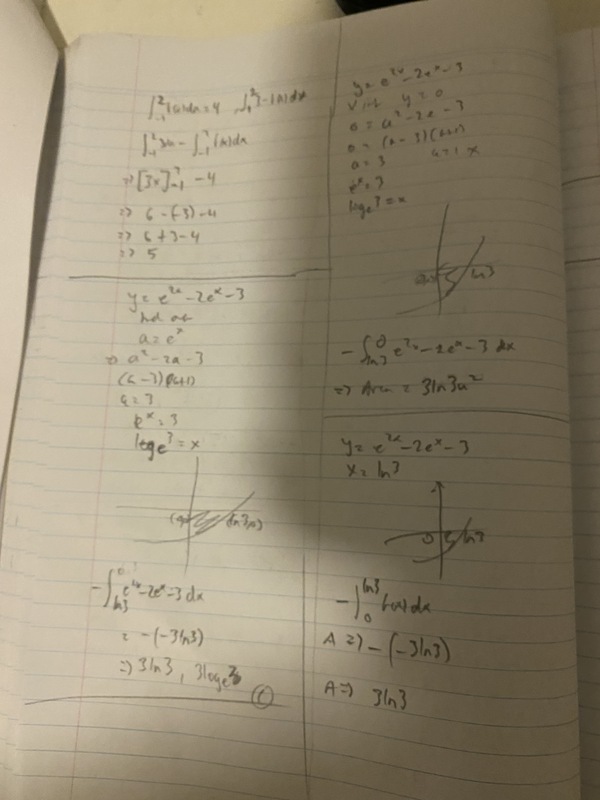 ∫₋₁² f(x)dx = 4   ∫₋₁² 3-f(x)dx
∫₋₁² 3dx - ∫₋₁² f(x)dx
=> [3x]₋₁² - 4
=> 6 - (-3) - 4
=> 6 + 3 - 4
=> 5
y = e²ˣ - 2eˣ - 3
a = eˣ
=> a² - 2a - 3
(a - 3)(a+1)
a = 3
eˣ = 3
logₑ3 = x
(ln3,0)
-∫ₗₙ₃⁰ e²ˣ - 2eˣ - 3 dx
= -(-3ln3)
=> 3ln3, 3logₑ3
C
y = e²ˣ - 2eˣ - 3
x int y = 0
0 = a² - 2a - 3
0 = (a - 3)(a+1)
a = 3   a = 1 x
eˣ = 3
logₑ3 = x
ln3
-∫ₗₙ₃⁰ e²ˣ - 2eˣ - 3 dx
=> Area = 3ln3u²
y = e²ˣ - 2eˣ - 3
x = ln3
0 ln3
-∫₀ˡⁿ³ f(x)dx
A => -(-3ln3)
A => 3ln3